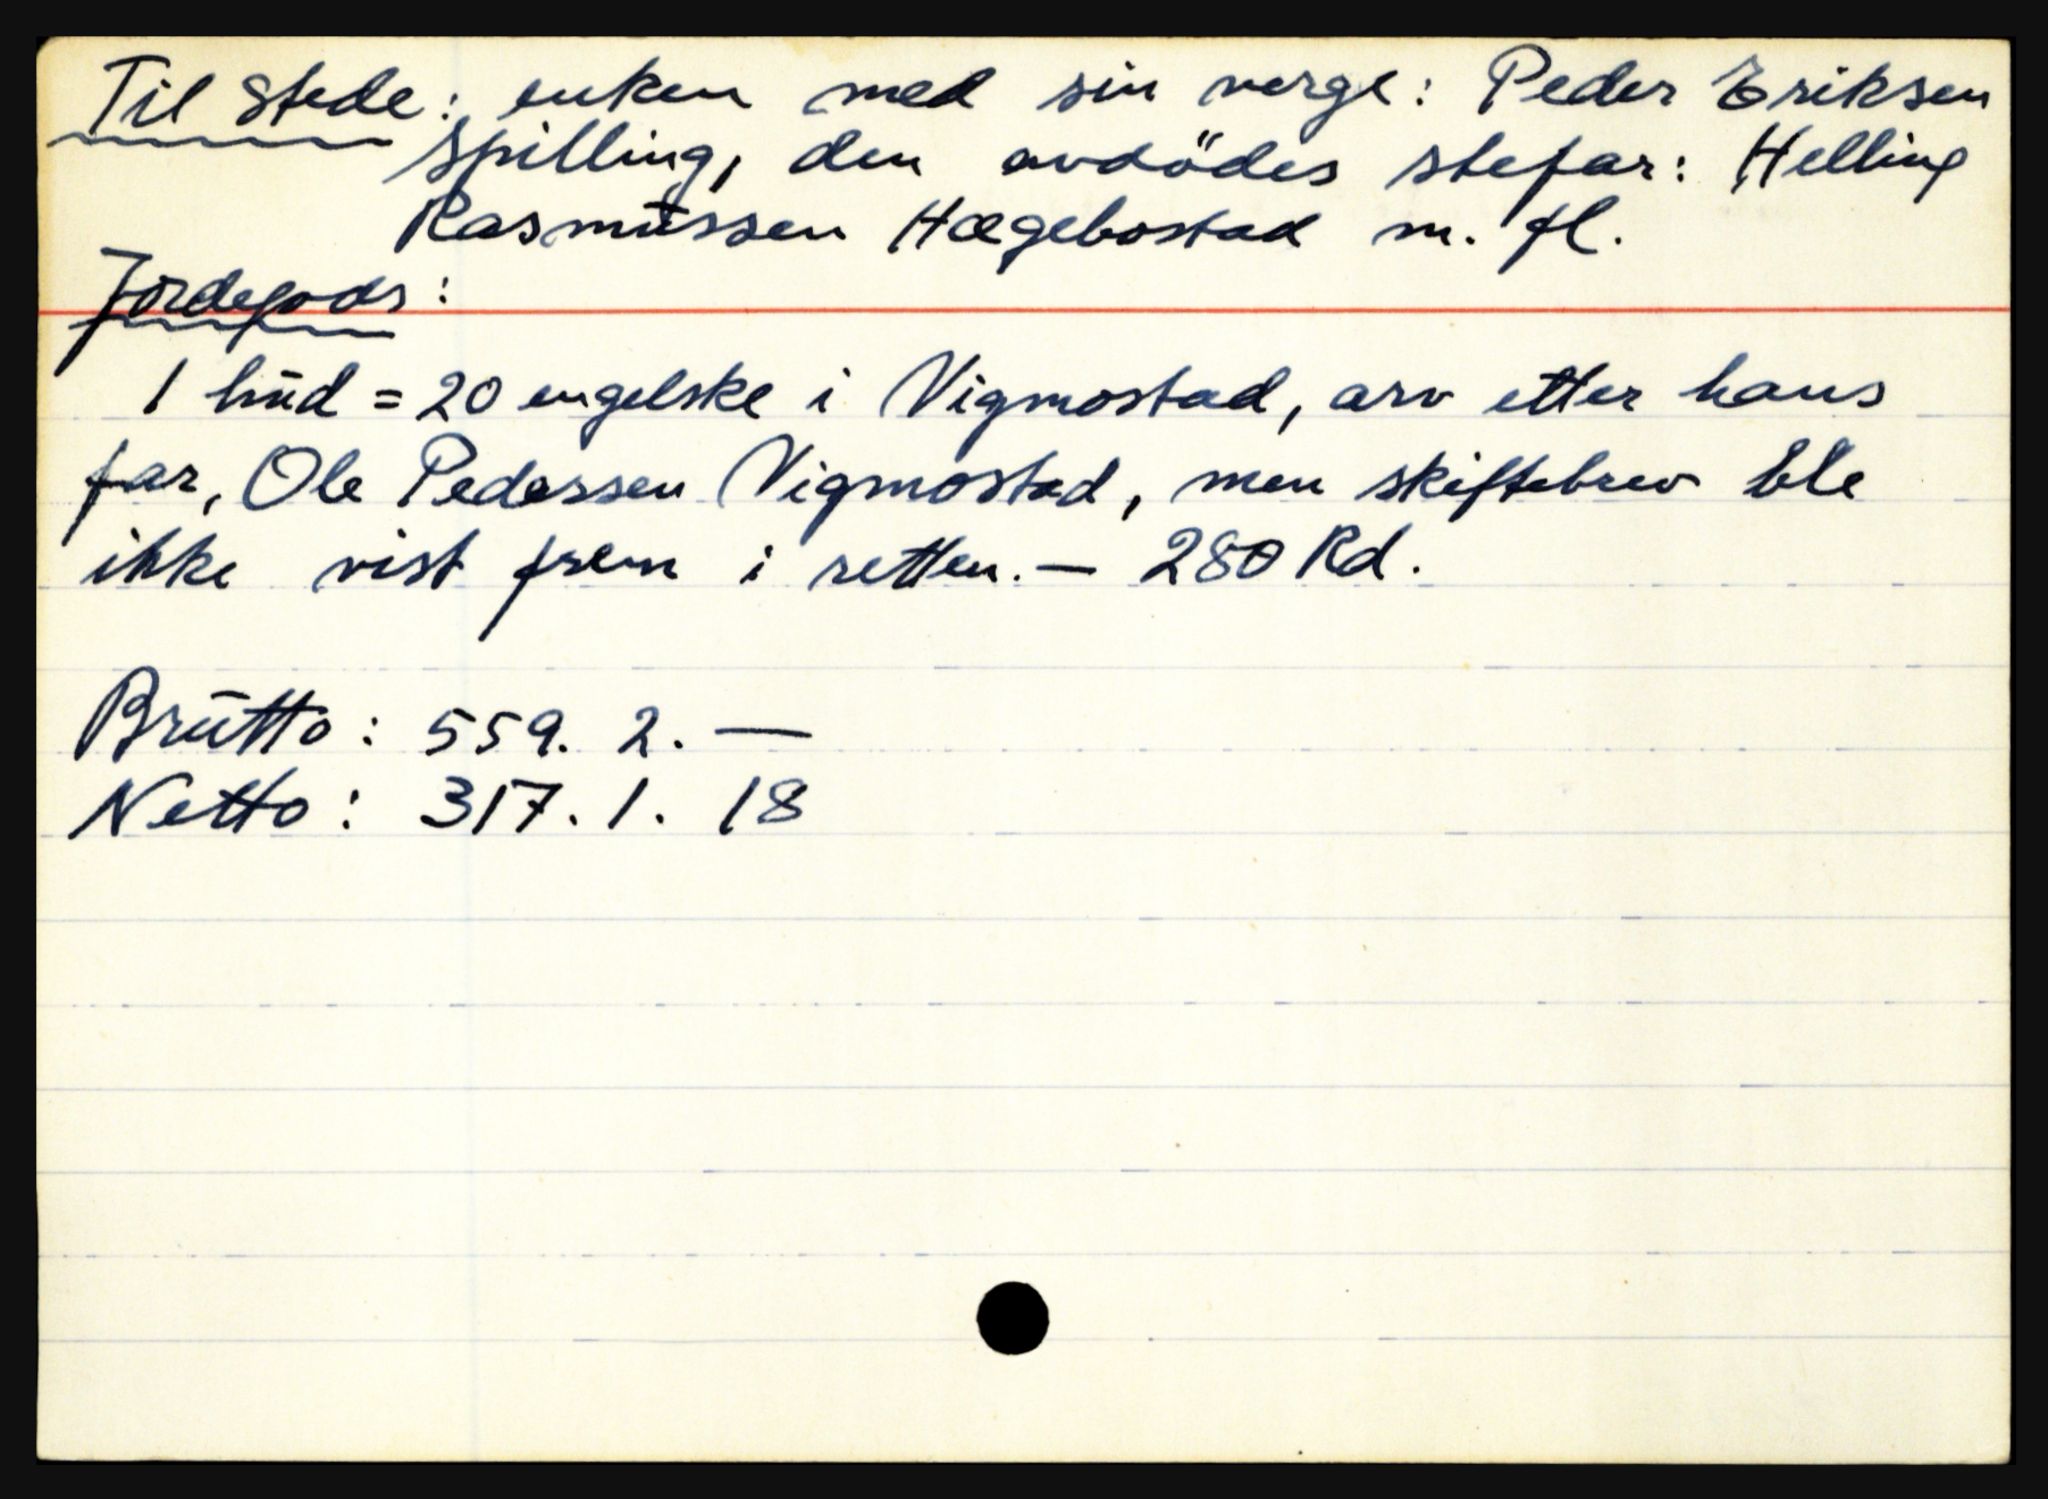 Til stede: enken med sin verge: Peder Eriksen
Spilling, den avdödes stefar: Helling
Rasmussen Hægebostad m. fl.
Jordegods:
1 hud = 20 engelske i Vigmostad, arv etter hans
far, Ole Pedersen Vigmostad, men skiftebrev ble
ikke vist frem i retten. — 280 Rd.
Brutto: 559. 2. —
Netto: 317. 1. 18